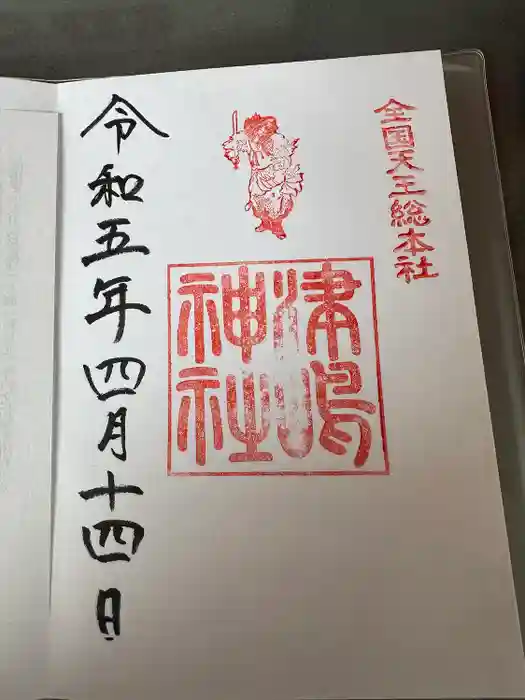 全国天王総本社
津嶋
神社
令和五年四月十四日